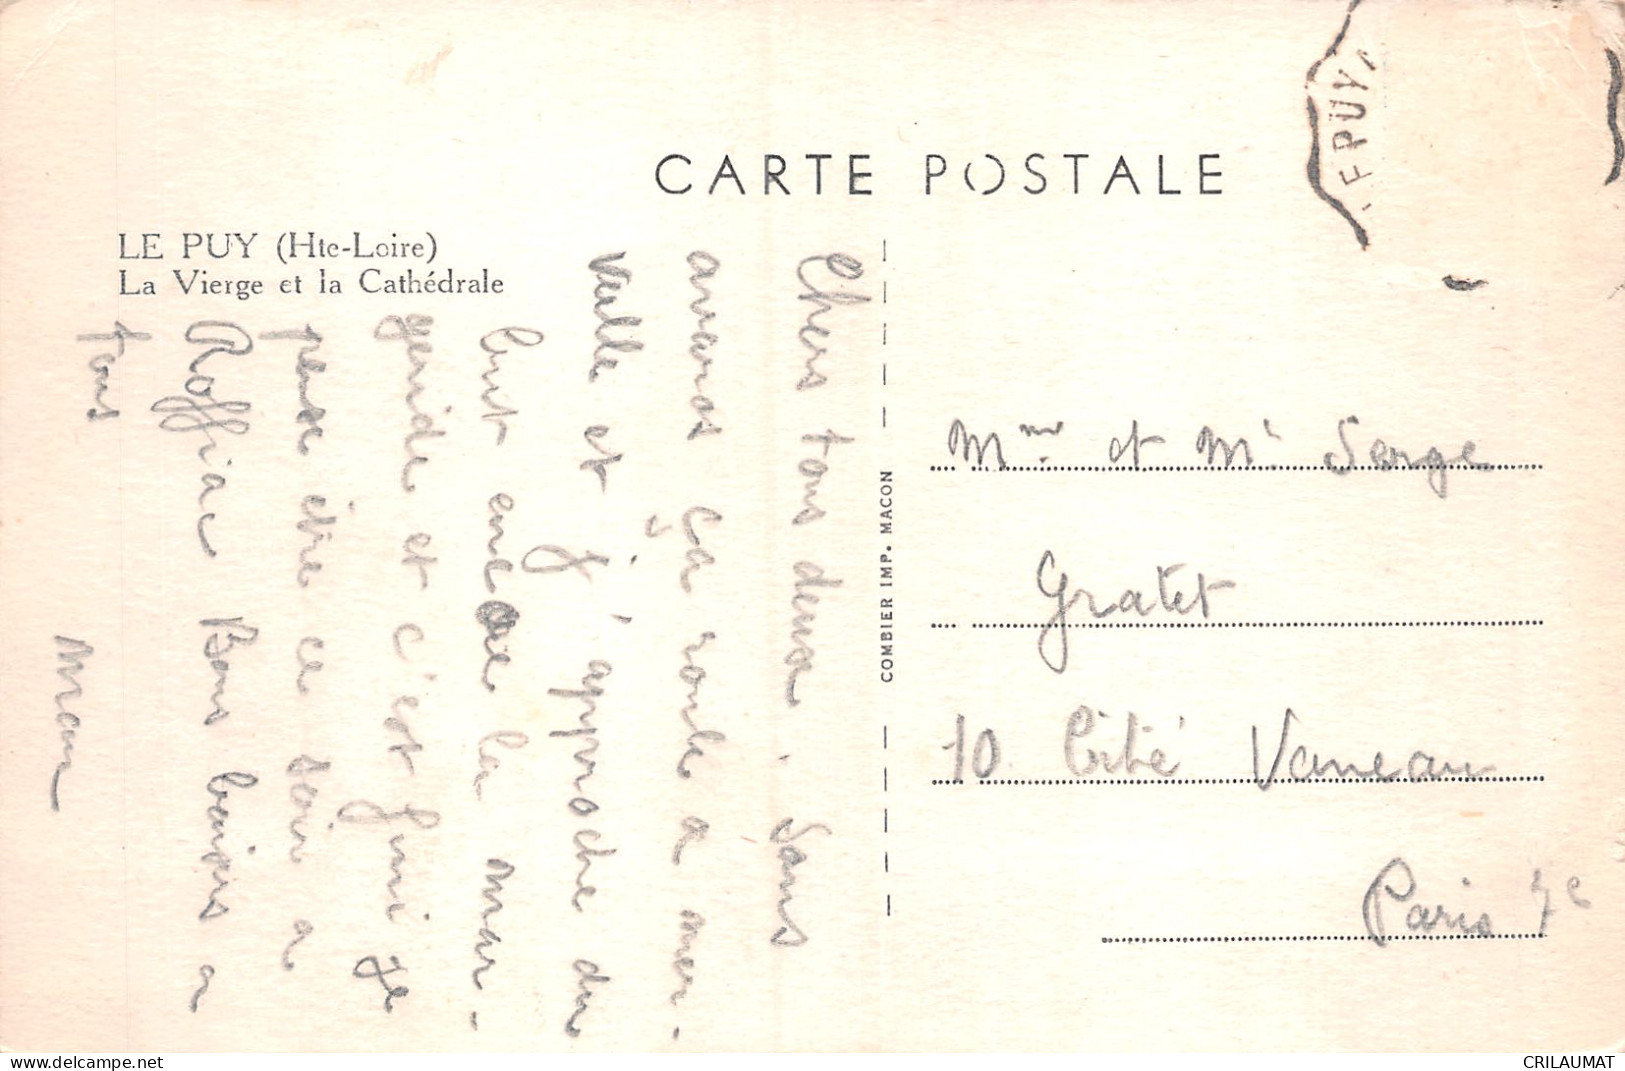 CARTE POSTALE
LE PUY (Hte-Loire)
La Vierge et la Cathédrale
Chers tous deux. Sans
avaros ça roule a mer-
veille et j'approche du
but encore la Mar-
geride et c'est fini je
pense être ce soir a
Roffiac Bons baisers a
tous
Man
COMBIER IMP. MACON
Mme et Mr Serge
Gratet
10 Cité Vaneau
Paris 7e
PUY
delcampe.net
CRILAUMAT